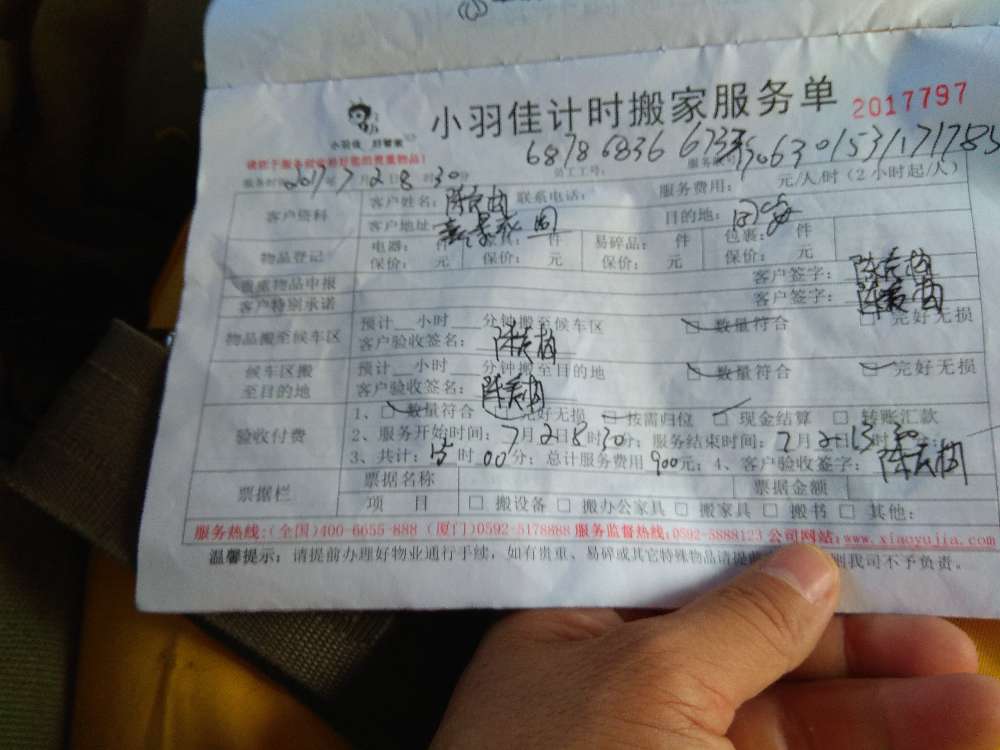 小羽佳计时搬家服务单 2017797
小羽佳 好管家
6878 6836 6733
请于服务前收好您的贵重物品! 员工工号: 服务账号:
服务时间: 2017年7月2日8时30分 服务费用: 元/人/时(2小时起/人)
客户资料 客户姓名: 联系电话:
客户地址: 目的地: 同安
物品登记 电器: 件 家具: 件 易碎品: 件 包裹: 件
保价: 元 保价: 元 保价: 元 保价: 元
贵重物品申报 客户签字:
客户特别承诺 客户签字:
物品搬至候车区 预计__小时__分钟搬至候车区 □ 数量符合 □ 完好无损
客户验收签名:
候车区搬至目的地 预计__小时__分钟搬至目的地 □ 数量符合 □ 完好无损
客户验收签名:
验收付费 1、□ 数量符合 □ 完好无损 □ 按需归位 □ 现金结算 □ 转账汇款
2、服务开始时间: 7月2日8时30分; 服务结束时间: 7月2日13时30分;
3、共计: 时00分; 总计服务费用900元; 4、客户验收签字:
票据栏 票据名称 票据金额
项 目 □ 搬设备 □ 搬办公家具 □ 搬家具 □ 搬书 □ 其他:
服务热线:(全国)400-6055-888 (厦门)0592-5178888 服务监督热线:0592-5888123 公司网站:www.xiaoyujia.com
温馨提示: 请提前办理好物业通行手续, 如有贵重、易碎或其它特殊物品请提前 则我司不予负责。